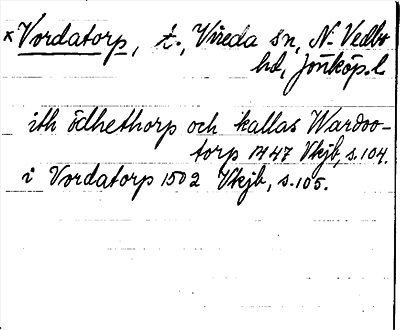 × Vordatorp, t., Vireda sn, N. Vedbo
hd, Jönköp. l
ith ödhethorp och kallas Wardoo-
torp 1447 Vkjb, s. 104.
i Vordatorp 1502 Vkjb, s. 105.